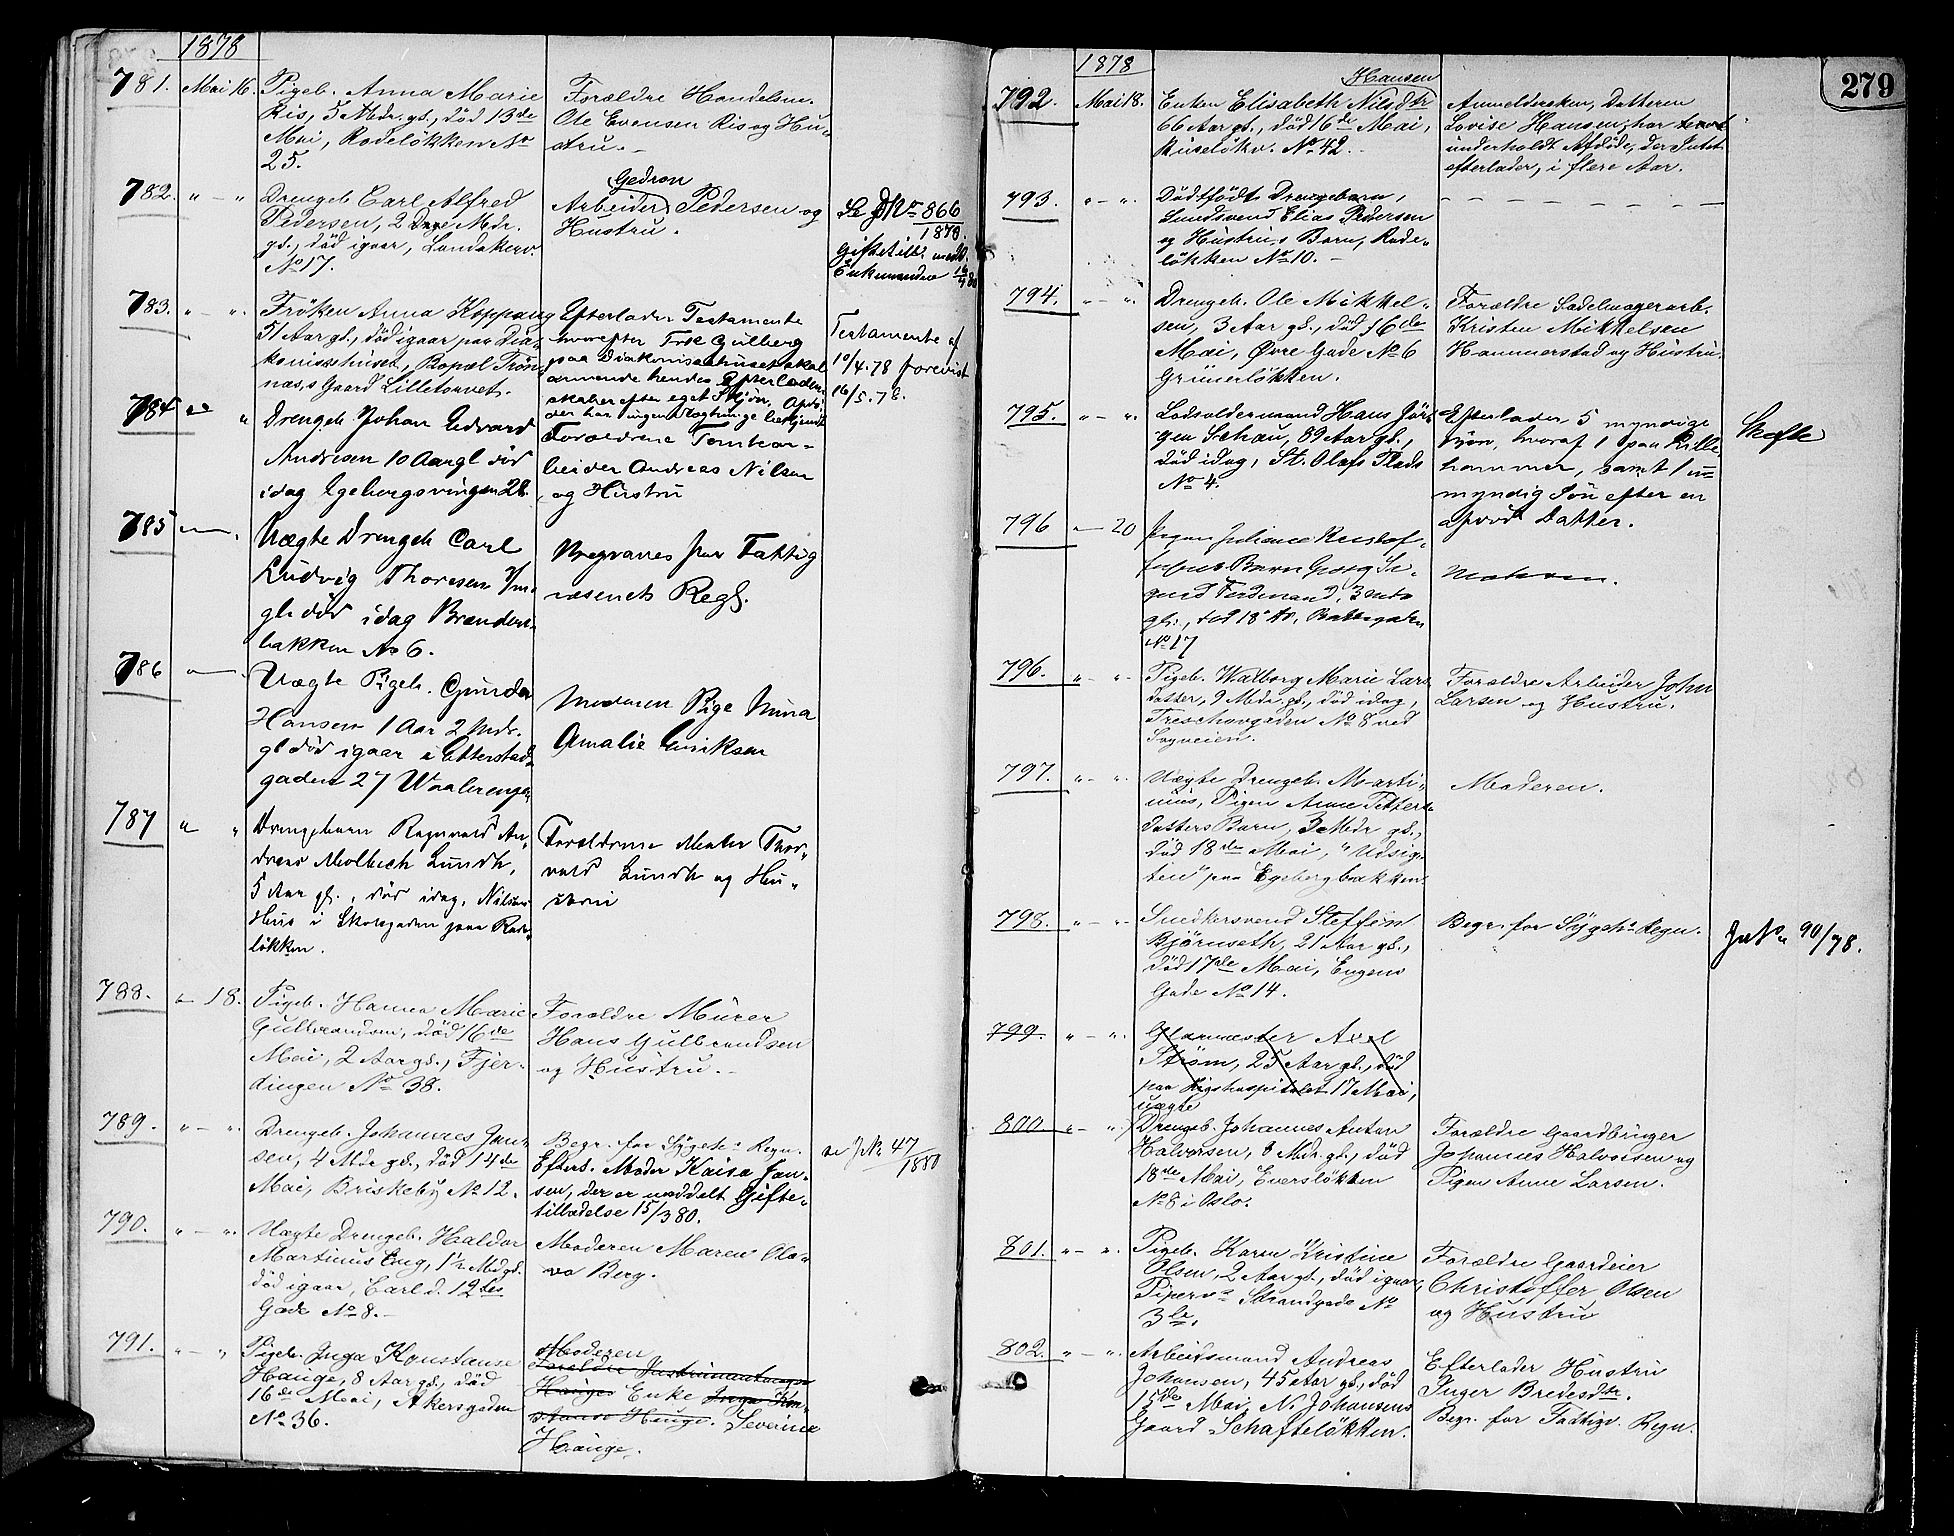 1878
781. Mai 16. Pigeb. Anna Marie
Ris, 5 Mdr. gl., död 13de
Mai, Rodelökken No
25.
Forældre Handelsm.
Ole Evensen Ris og Hu-
stru.
782. " - " Drengeb. Carl Alfred
Pedersen, 2 Mdr.
gl., död igaar, Landakerv.
No 17.
Gedron
Arbeider Pedersen og
Hustru.
Se No 866
1878.
Giftetill. medd.
Enkemanden
783. " - ". Fröken Anna Koppang
51 Aar gl., död igaar paa Dia-
konissehuset, Bopæl Trön-
næs's Gaard Lilletorvet.
Efterlader Testamente
hvorefter Frk Gulberg
paa Diakonissehuset skal
anvende hendes Efterladen-
skaber efter eget Skjön. Afdö-
de har ingen Slegtninge bekjendt
Testamente af
10/4.78 forevist
16/5.78.
784 " " Drengeb. Johan Edvard
Andresen 10 Aar gl död
idag Egebergsvingen 28.
Forældrene Tomtear-
beider Andreas Nilsen
og Hustru
785 " — . Uægte Drengeb Carl
Ludvig Thoresen
gl död idag Brænders-
bakken No 6.
Begraves for Fattig
væsenets Regg.
786 " — . Uægte Pigeb. Gunda
Hansen 1 Aar 2 Mdr.
gl död igaar i Etterstad-
gaden 27 Waalerenga.
Moderen Pige Nina
Amalie Eriksen
787 " " Drengebarn Ragnvald An-
dreas Molbech Lundh,
5 Aar gl., död idag, Nilsens
Hus i Skolegaden paa Rode-
lökken.
Forældrene Thor-
vald Lundh og Hu-
stru
788. " 18. Pigeb. Hanna Marie
Gulbrandsen, död 16de
Mai, 2 Aar gl., Fjer-
dingen No 38.
Forældre Murer
Hans Gulbrandsen
og Hustru.
789. " - ". Drengeb. Johannes Jan-
sen, 4 Mdr gl., död 14de
Mai, Briskeby No 12.
Begr. for Sygeh's Regn.
Efterl. Moder Kaisa Jan-
sen, der er meddelt Gifte-
tilladelse 15/3 80.
se J No 47
1880
790. " - ". Uægte Drengeb. Haldor
Martinus Eng, 1½ Md gl.
död igaar, Carl d. 12tes
Gade No 8.
Moderen Maren Ola-
va Berg.
791. " - " Pigeb. Inga Konstanse
Hauge, 8 Aar gl., död
16de Mai, Akersgaden
No 36.
Moderen
Forældre Instrumentmager
Hauges Enke Inga Kon-
stanse Hauge. Severine
Hauge.
279
1878
792. Mai 18. Hansen
Enken Elisabeth Nilsdtr
66 Aar gl., död 16de Mai,
Ruselökv. No 42.
Anmeldersken, Datteren
Lovise Hansen, har
underholdt Afdöde, der Intet
efterlader, i flere Aar.
793. " - ". Dödfödt Drengebarn,
Elias Pedersen
og Hustru's Barn, Rode-
lökken No 10. -
794. " - ". Drengeb. Ole Mikkel-
sen, 3 Aar gl., död 16de
Mai, Øvre Gade No 6
Grünerlökken.
Forældre Sadelmagerarb.
Kristen Mikkelsen
Hammerstad og Hustru.
795. " - ". Lodsoldermand Hans Jör-
gen Schau, 89 Aar gl.,
död idag, St. Olafs Plads
No 4.
Efterlader 5 myndige
hvoraf 1 paa Lille-
hammer, samt 1 u-
myndig Sön efter en
afdöd Datter.
Skifte
796 " — 20 Pigen Juliane
Barn Georg Si-
gurd Ferdinand, 3
gl., död 18 ds,
No 17
Moderen.
796. " - ". Pigeb. Walborg Marie Lars-
datter, 9 Mdr. gl., död idag,
Treschowgaden No 8 ved
Sagveien.
Forældre Arbeider John
Larsen og Hustru.
797. " - ". Uægte Drengeb. Marti-
nus, Pigen Anne Petters-
datters Barn, 3 Mdr gl.,
död 18de Mai, "Udsig-
ten" paa Egebergbakken.
Moderen.
798. " - ". Snedkersvend Steffen
Bjørnseth, 21 Aar gl.,
död 17de Mai, Eugens
Gade No 14.
Begr. for Sygeh's Regn.
90/78.
799. " - ". Glarmester Axel
Ström, 25 Aar gl., död
paa Rigshospitalet 17 Mai,
800 " - ". uægte
Drengeb. Johannes Anton
Halvorsen, 8 Mdr. gl., död
18de Mai, Enerslökken
No 8 i Oslo.
Forældre Gaardbruger
Johannes Halvorsen og
Pigen Anne Larsen.
801. " - ". Pigeb. Karen Kristine
Olsen, 2 Aar gl., död igaar,
Piperv's Strandgade No
3 b.
Forældre Gaardeier
Christoffer Olsen
og Hustru
802. " - ". Arbeidsmand Andreas
Johansen, 45 Aar gl., död
15de Mai, N. Johansens
Gaard Schafteløkken.
Efterlader Hustru
Inger Bredesdtr.
Begr. for Fattigv. Regn.